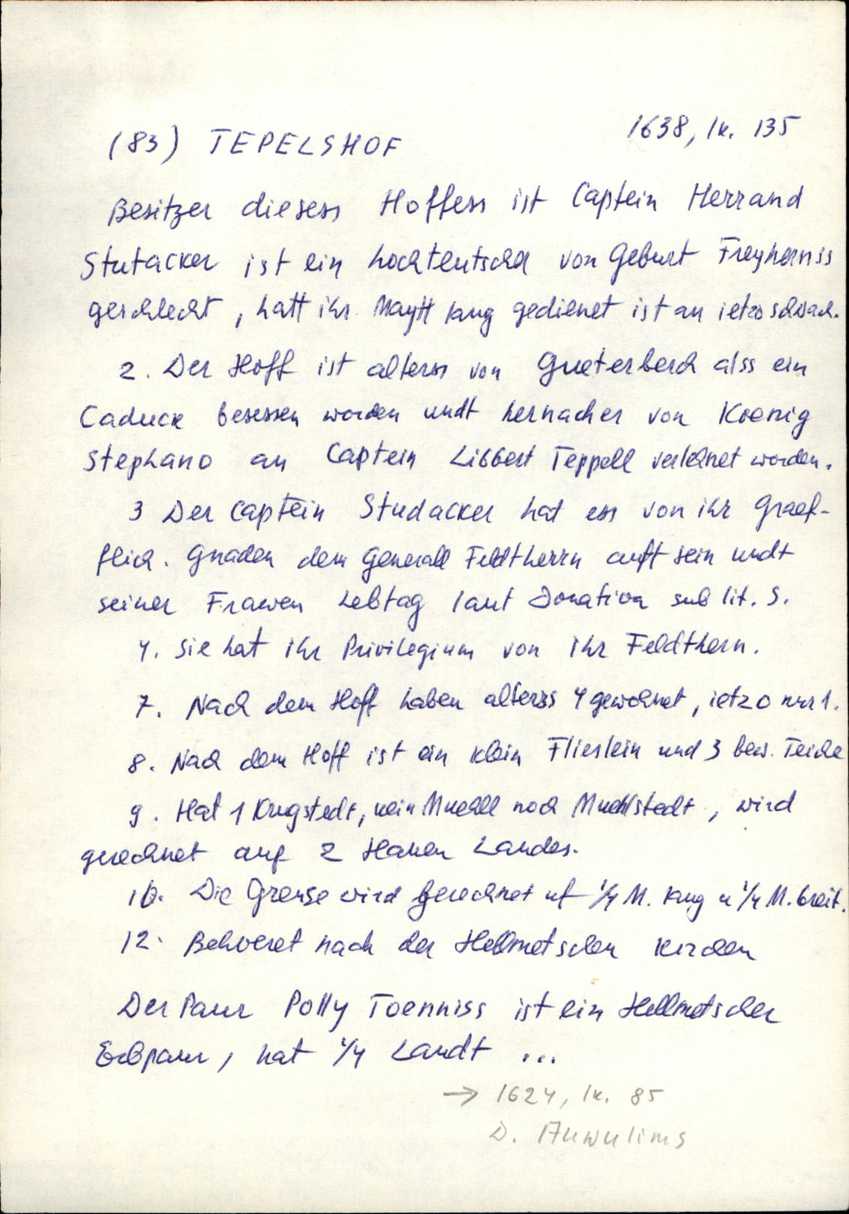 (83) TEPELSHOF 1638, lk. 135
Besitzer diesess Hoffess ist Captein Herrand
Stutacker ist ein hochteutscher von Geburt Freyherniss
geschlecht, hatt ihr Maytt lang gedienet ist an ietzo schwach.
2. Der Hoff ist alterss von Gueterberch alss ein
Caduck besessen worden undt hernacher von Koenig
Stephano an Captein Libbert Teppell verlehnet worden.
3 Der Captein Studacker hat ess von ihr Graef-
flich. Gnaden dem Generall Feldtherrn auft sein undt
seiner Frawen Lebtag laut Donation sub lit. S.
4. Sie hat ihr Privilegium von ihr Feldthern.
7. Nach dem Hoff haben alterss 4 gewohnet, ietzo nur 1.
8. Nach dem Hoff ist ein klein Flieslein und 3 bew. Teiche
9. Hat 1 Krugstedt, kein Muehll noch Muehlstedt, wird
gerechnet auf 2 Haken Landes.
10. Die Grense wird gerechnet uf 1/4 M. lang u 1/4 M. breit.
12. Behoeret nach der Hellmetschen Kirchen
Der Paur Polly Toenniss ist ein Hellmetscher
Erbpaur, hat 1/4 Landt ...
→ 1624, lk. 85
D.